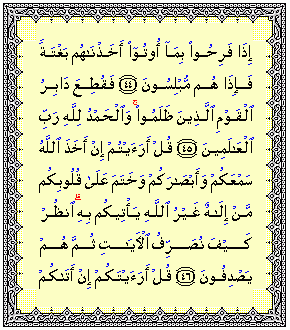 إِذَا فَرِحُوا۟ بِمَآ أُوتُوٓا۟ أَخَذْنَـٰهُم بَغْتَةً
فَإِذَا هُم مُّبْلِسُونَ ٤٤ فَقُطِعَ دَابِرُ
ٱلْقَوْمِ ٱلَّذِينَ ظَلَمُوا۟ ۚ وَٱلْحَمْدُ لِلَّهِ رَبِّ
ٱلْعَـٰلَمِينَ ٤٥ قُلْ أَرَءَيْتُمْ إِنْ أَخَذَ ٱللَّهُ
سَمْعَكُمْ وَأَبْصَـٰرَكُمْ وَخَتَمَ عَلَىٰ قُلُوبِكُم
مَّنْ إِلَـٰهٌ غَيْرُ ٱللَّهِ يَأْتِيكُم بِهِ ۗ ٱنظُرْ
كَيْفَ نُصَرِّفُ ٱلْـَٔايَـٰتِ ثُمَّ هُمْ
يَصْدِفُونَ ٤٦ قُلْ أَرَءَيْتَكُمْ إِنْ أَتَىٰكُمْ